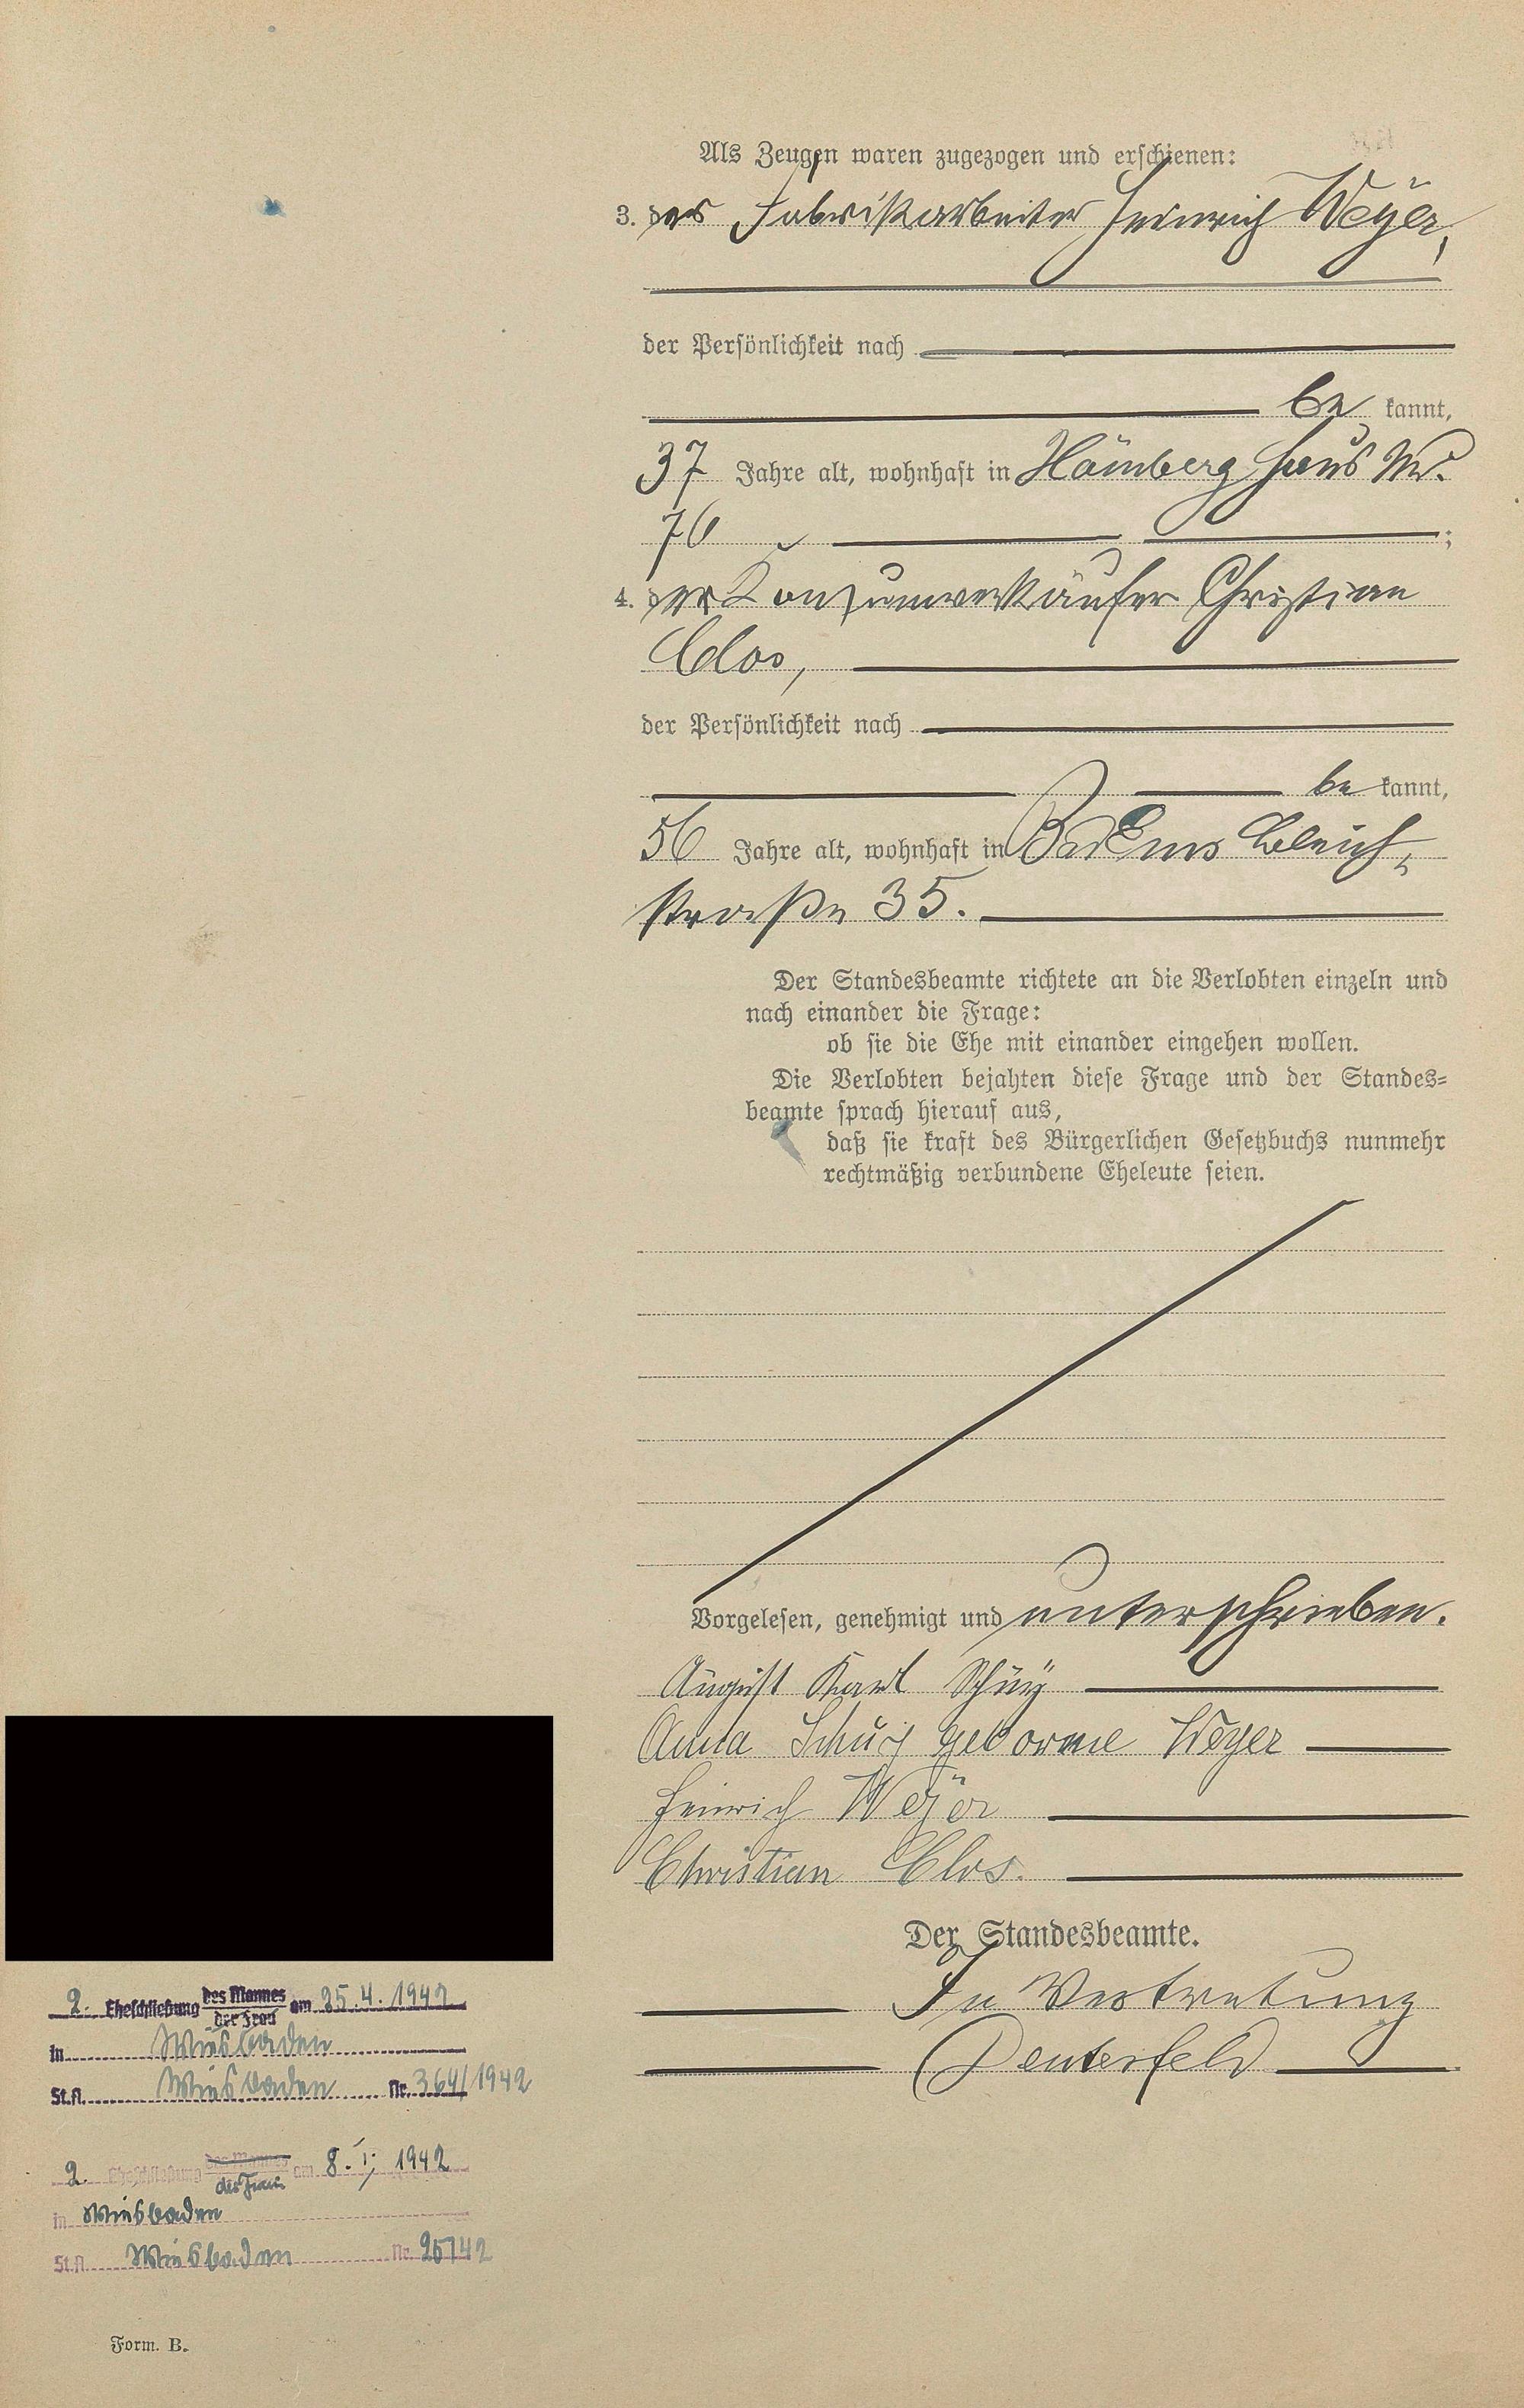 Als Zeugen waren zugezogen und erschienen:
3. der Fabrikarbeiter Heinrich Weyer,
der Persönlichkeit nach
be kannt,
37 Jahre alt, wohnhaft in Hömberg Haus Nr.
76
4. der Konsumverkäufer Christian
Clos,
der Persönlichkeit nach
be kannt,
56 Jahre alt, wohnhaft in Bad Ems Bleich-
straße 35.
Der Standesbeamte richtete an die Verlobten einzeln und
nach einander die Frage:
ob sie die Ehe mit einander eingehen wollen.
Die Verlobten bejahten diese Frage und der Standes-
beamte sprach hierauf aus,
daß sie kraft des Bürgerlichen Gesetzbuchs nunmehr
rechtmäßig verbundene Eheleute seien.
Vorgelesen, genehmigt und unterschrieben.
August Karl Schuy
Anna Schuy geborene Weyer
Heinrich Weyer
Christian Clos.
Der Standesbeamte.
In Vertretung
2. Eheschließung des Mannes der Frau am 25.4.1942
in Wiesbaden
St.A. Wiesbaden Nr. 364/1942
2. Eheschließung des Mannes der Frau am 8. 1942
in Wiesbaden
St.A. Wiesbaden Nr.
Form. B.